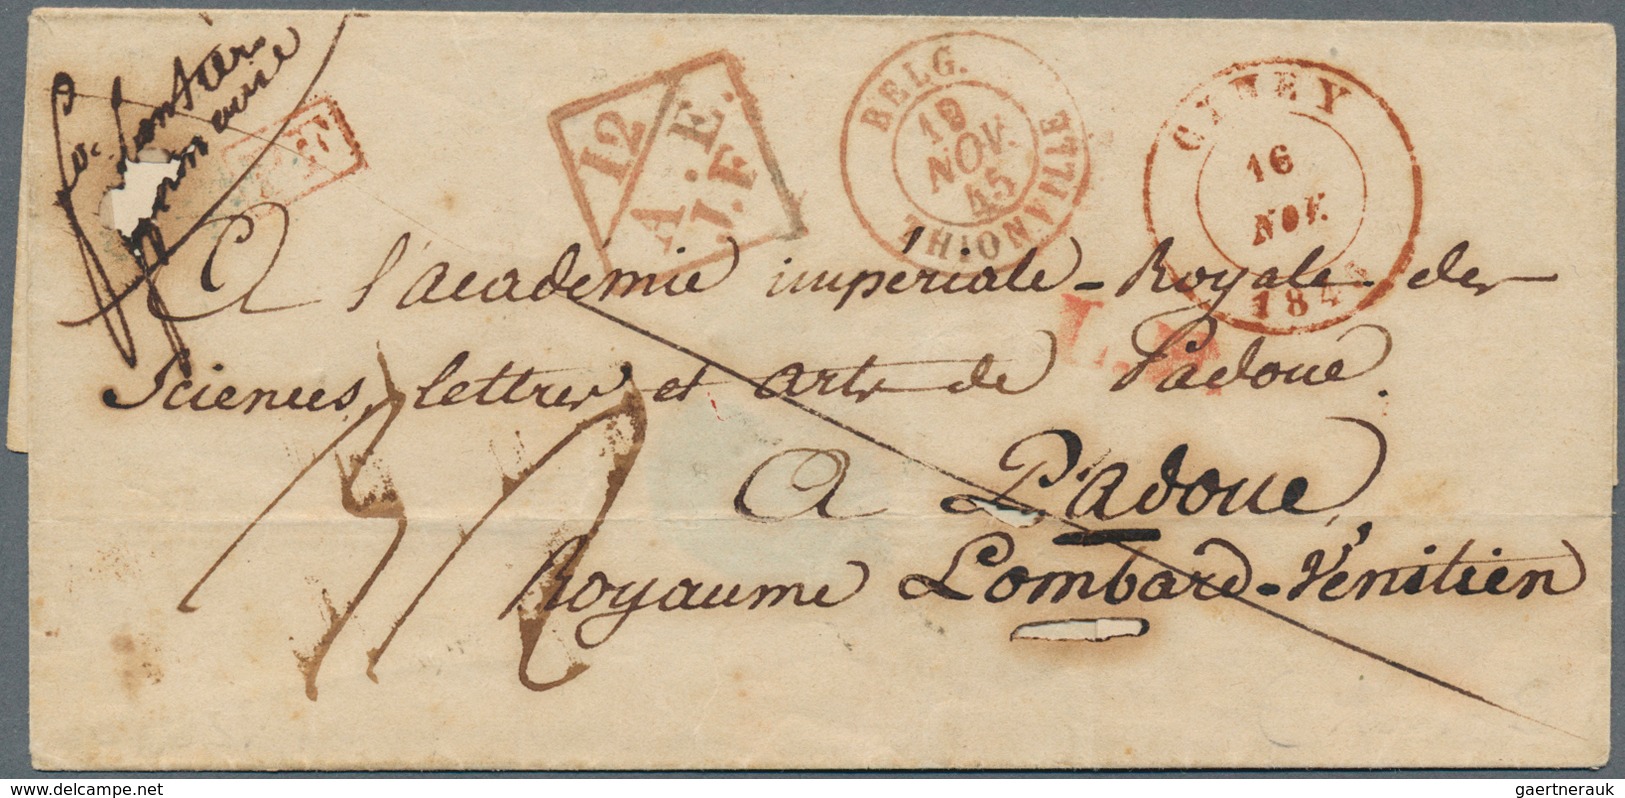 frontière
12
A.E.
J.F.
BELG.
19
NOV.
45
THIONVILLE
CINEY
16
NOV.
184
A l'académie impériale-Royale des
Sciences, lettres et arts de Padoue.
A Padoue,
Royaume Lombard-Vénitien
delcampe.net
gaertnerauk